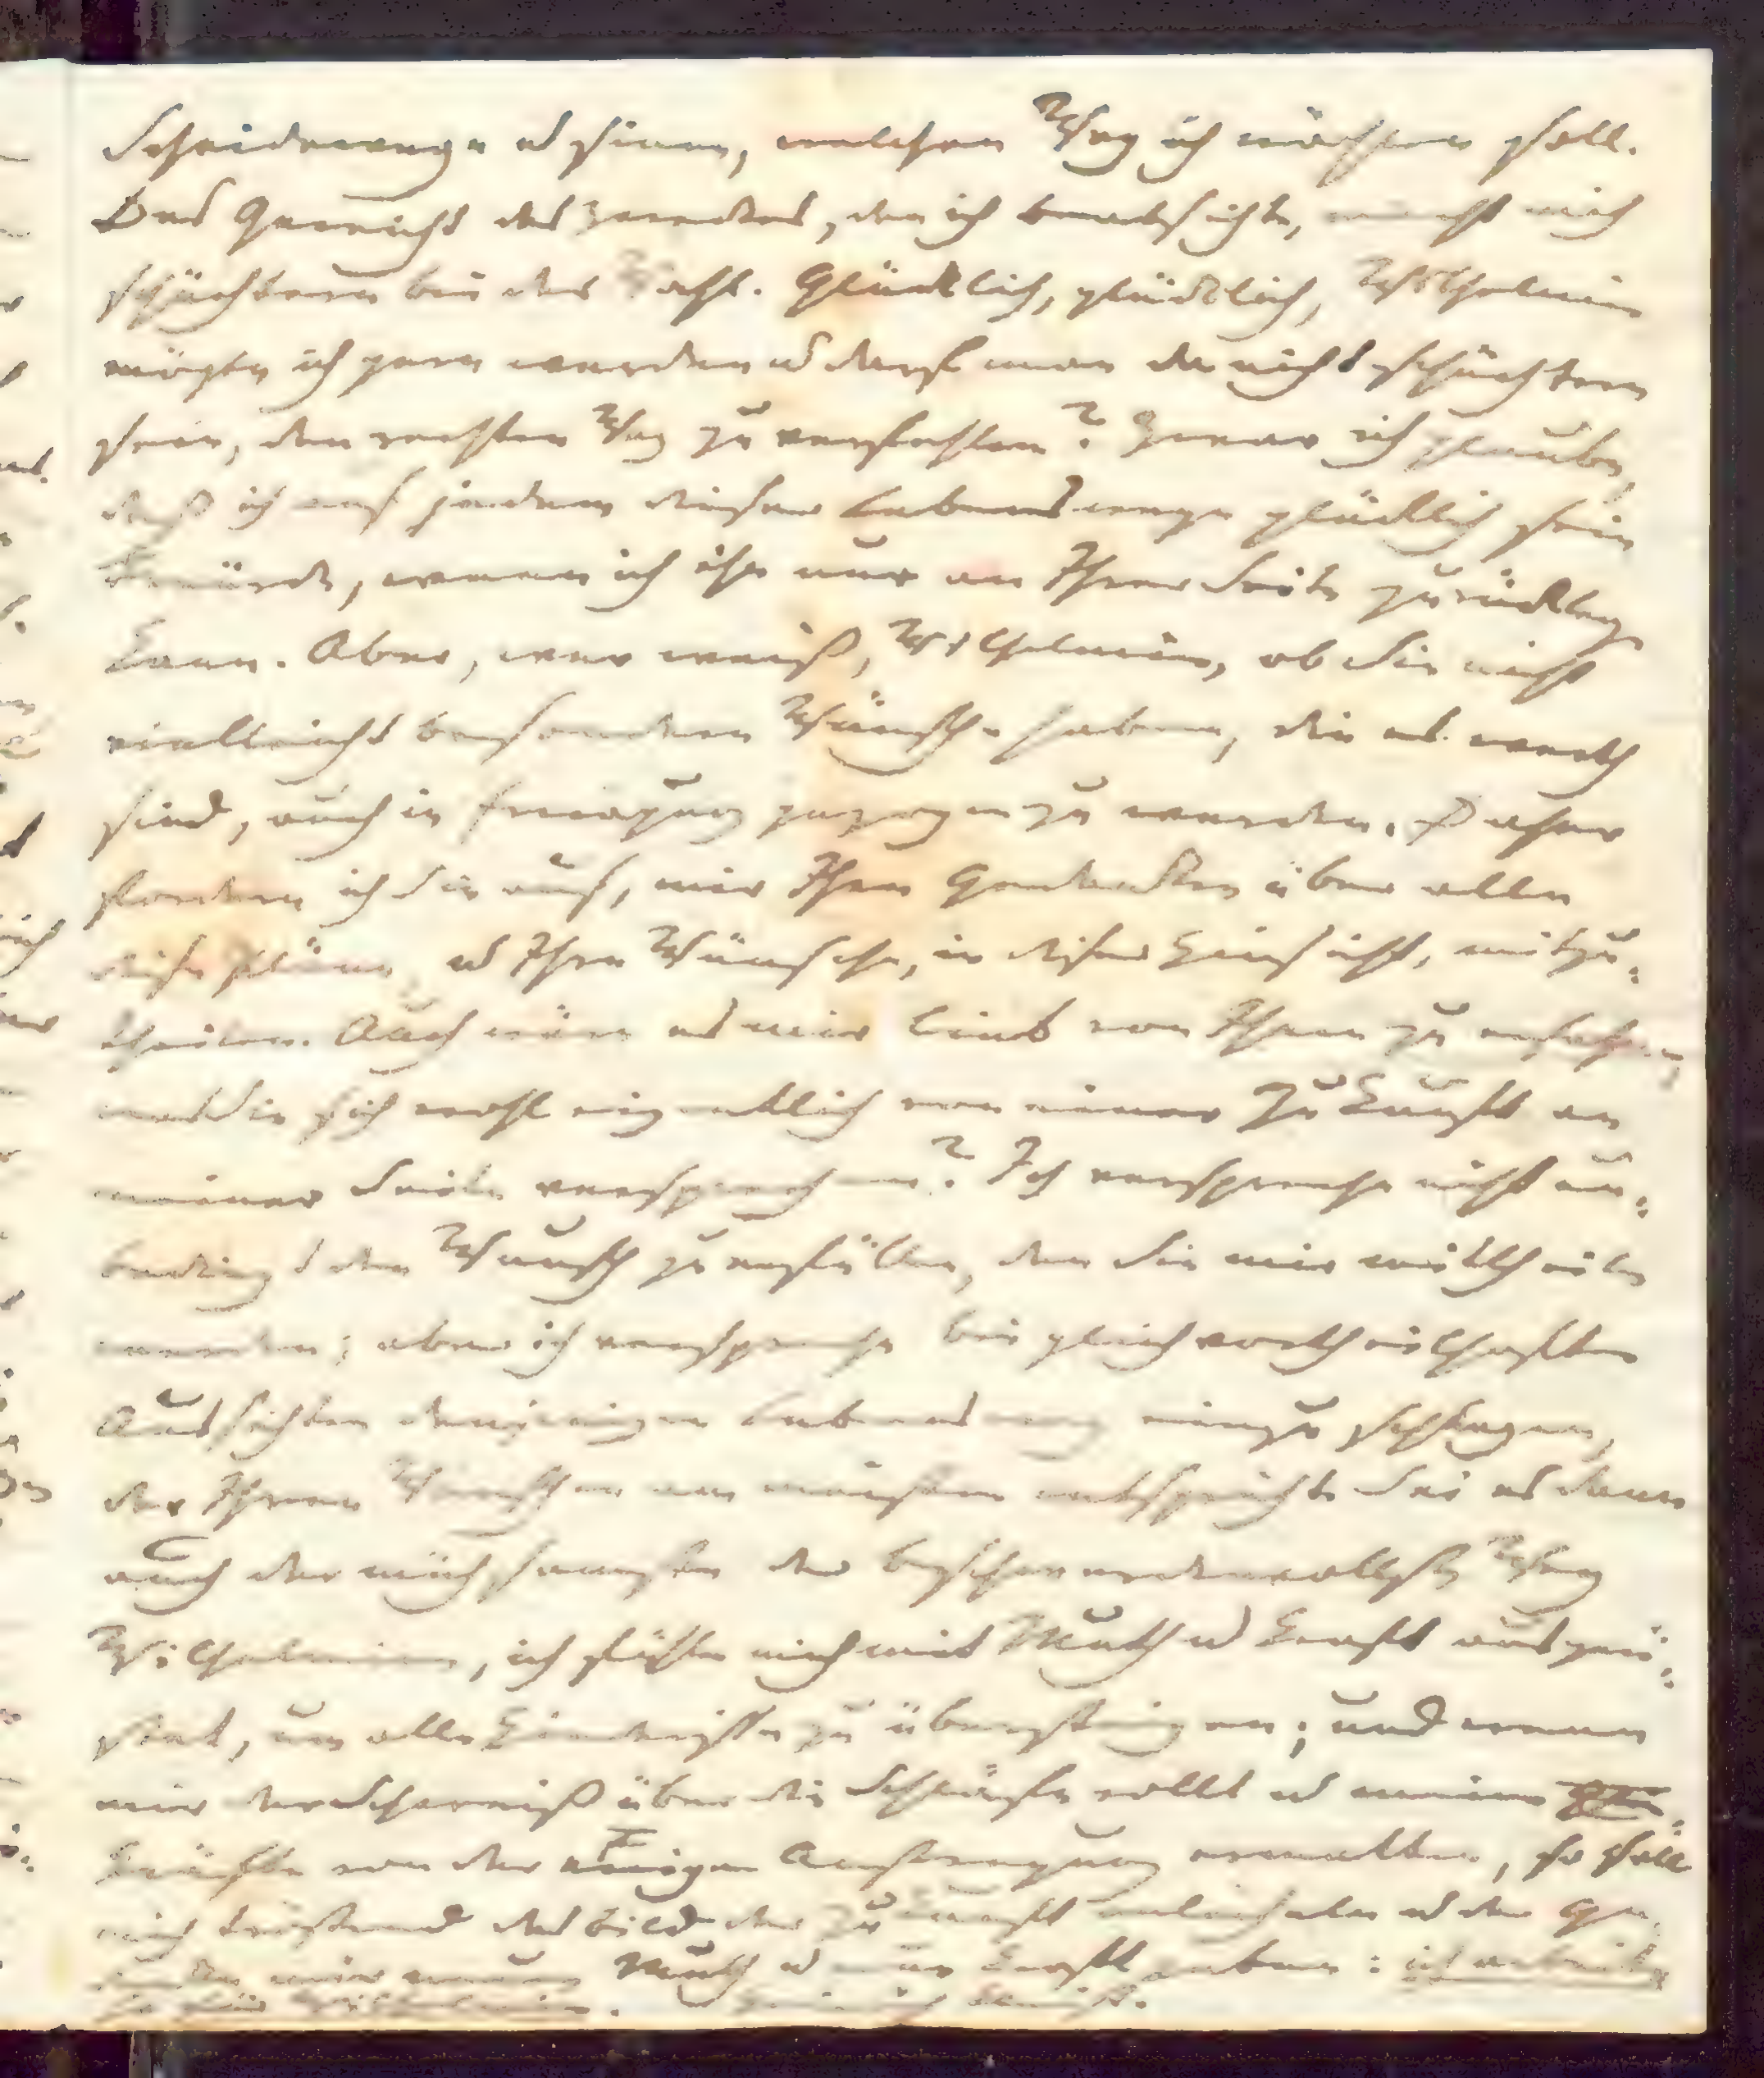 Scheidewege u sinne, welchen Weg ich wählen soll.
Das Gewicht des Zweckes, den ich beabsichte, macht mich
schüchtern bei der Wahl. Glücklich, glücklich, Wilhelmine
mögte ich gern werden u darf man da nicht schüchtern
sein, den rechten Weg zu verfehlen? Zwar ich glaube,
daß ich auf jedem dieser Lebenswege glücklich sein
würde, wenn ich ihn nur an Ihrer Seite zurücklegen
kann. Aber, wer weiß, Wilhelmine, ob Sie nicht
vielleicht besondere Wünsche haben, die es werth
sind, auch in Erwägung gezogen zu werden. Daher
fordere ich Sie auf, mir Ihre Gedanken über alle
diese Pläne, u Ihre Wünsche, in dieser Hinsicht, mitzu-
theilen. Auch wäre es mir lieb von Ihnen zu erfahren,
was Sie sich wohl eigentlich von einer Zukunft an
meiner Seite versprechen? Ich verspreche nicht un-
bedingt den Wunsch zu erfüllen, den Sie mir mittheilen
werden; aber ich verspreche bei gleich vortheilhaften
Aussichten demjenigen Lebensweg einzuschlagen,
der Ihren Wünschen am meisten entspricht. Sei es dann
auch der mühsamste, der beschwerdenvollste Weg
Wilhelmine, ich fühle mich mit Muth u Kraft ausgerü-
stet, um alle Hindernisse zu übersteigen; und wenn
mir der Schweiß über die Schläfe rollt u meine
Kräfte von der ewigen Anstrengung ermatten, so soll
mich tröstend das Bild der Zukunft anlächeln u der Ge-
danke mir neuen Muth u neue Kraft geben: ich arbeite
ja für Wilhelmine. Heinrich Kleist.